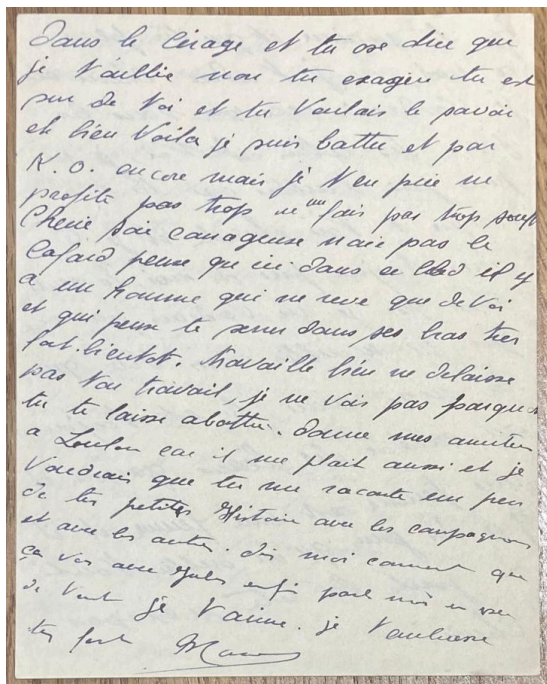 dans le cirage et tu ose dire que
je t'oublie non tu exagere tu est
sur de toi et tu voulais le savoir
eh bien voila je suis battu et par
K.O. encore mais je t'en prie ne
profite pas trop ne me fais pas trop
Cherie soie courageuse n'aie pas le
Cafard pense que ici dans ce bled il y
a un homme qui ne reve que de toi
et qui pense te serrer dans ses bras tres
fort bientot. travaille bien ne delaisse
pas ton travail, je ne vois pas
tu te laisse abattre. donne mes amities
a Loulou car il me plait aussi et je
voudrais que tu me raconte un peu
de tes petites Histoire avec les campagnons
et avec les autres. dis moi comment que
ça vas avec enfi parle moi un peu
de tout je t'aime. je t'embrasse
tres fort